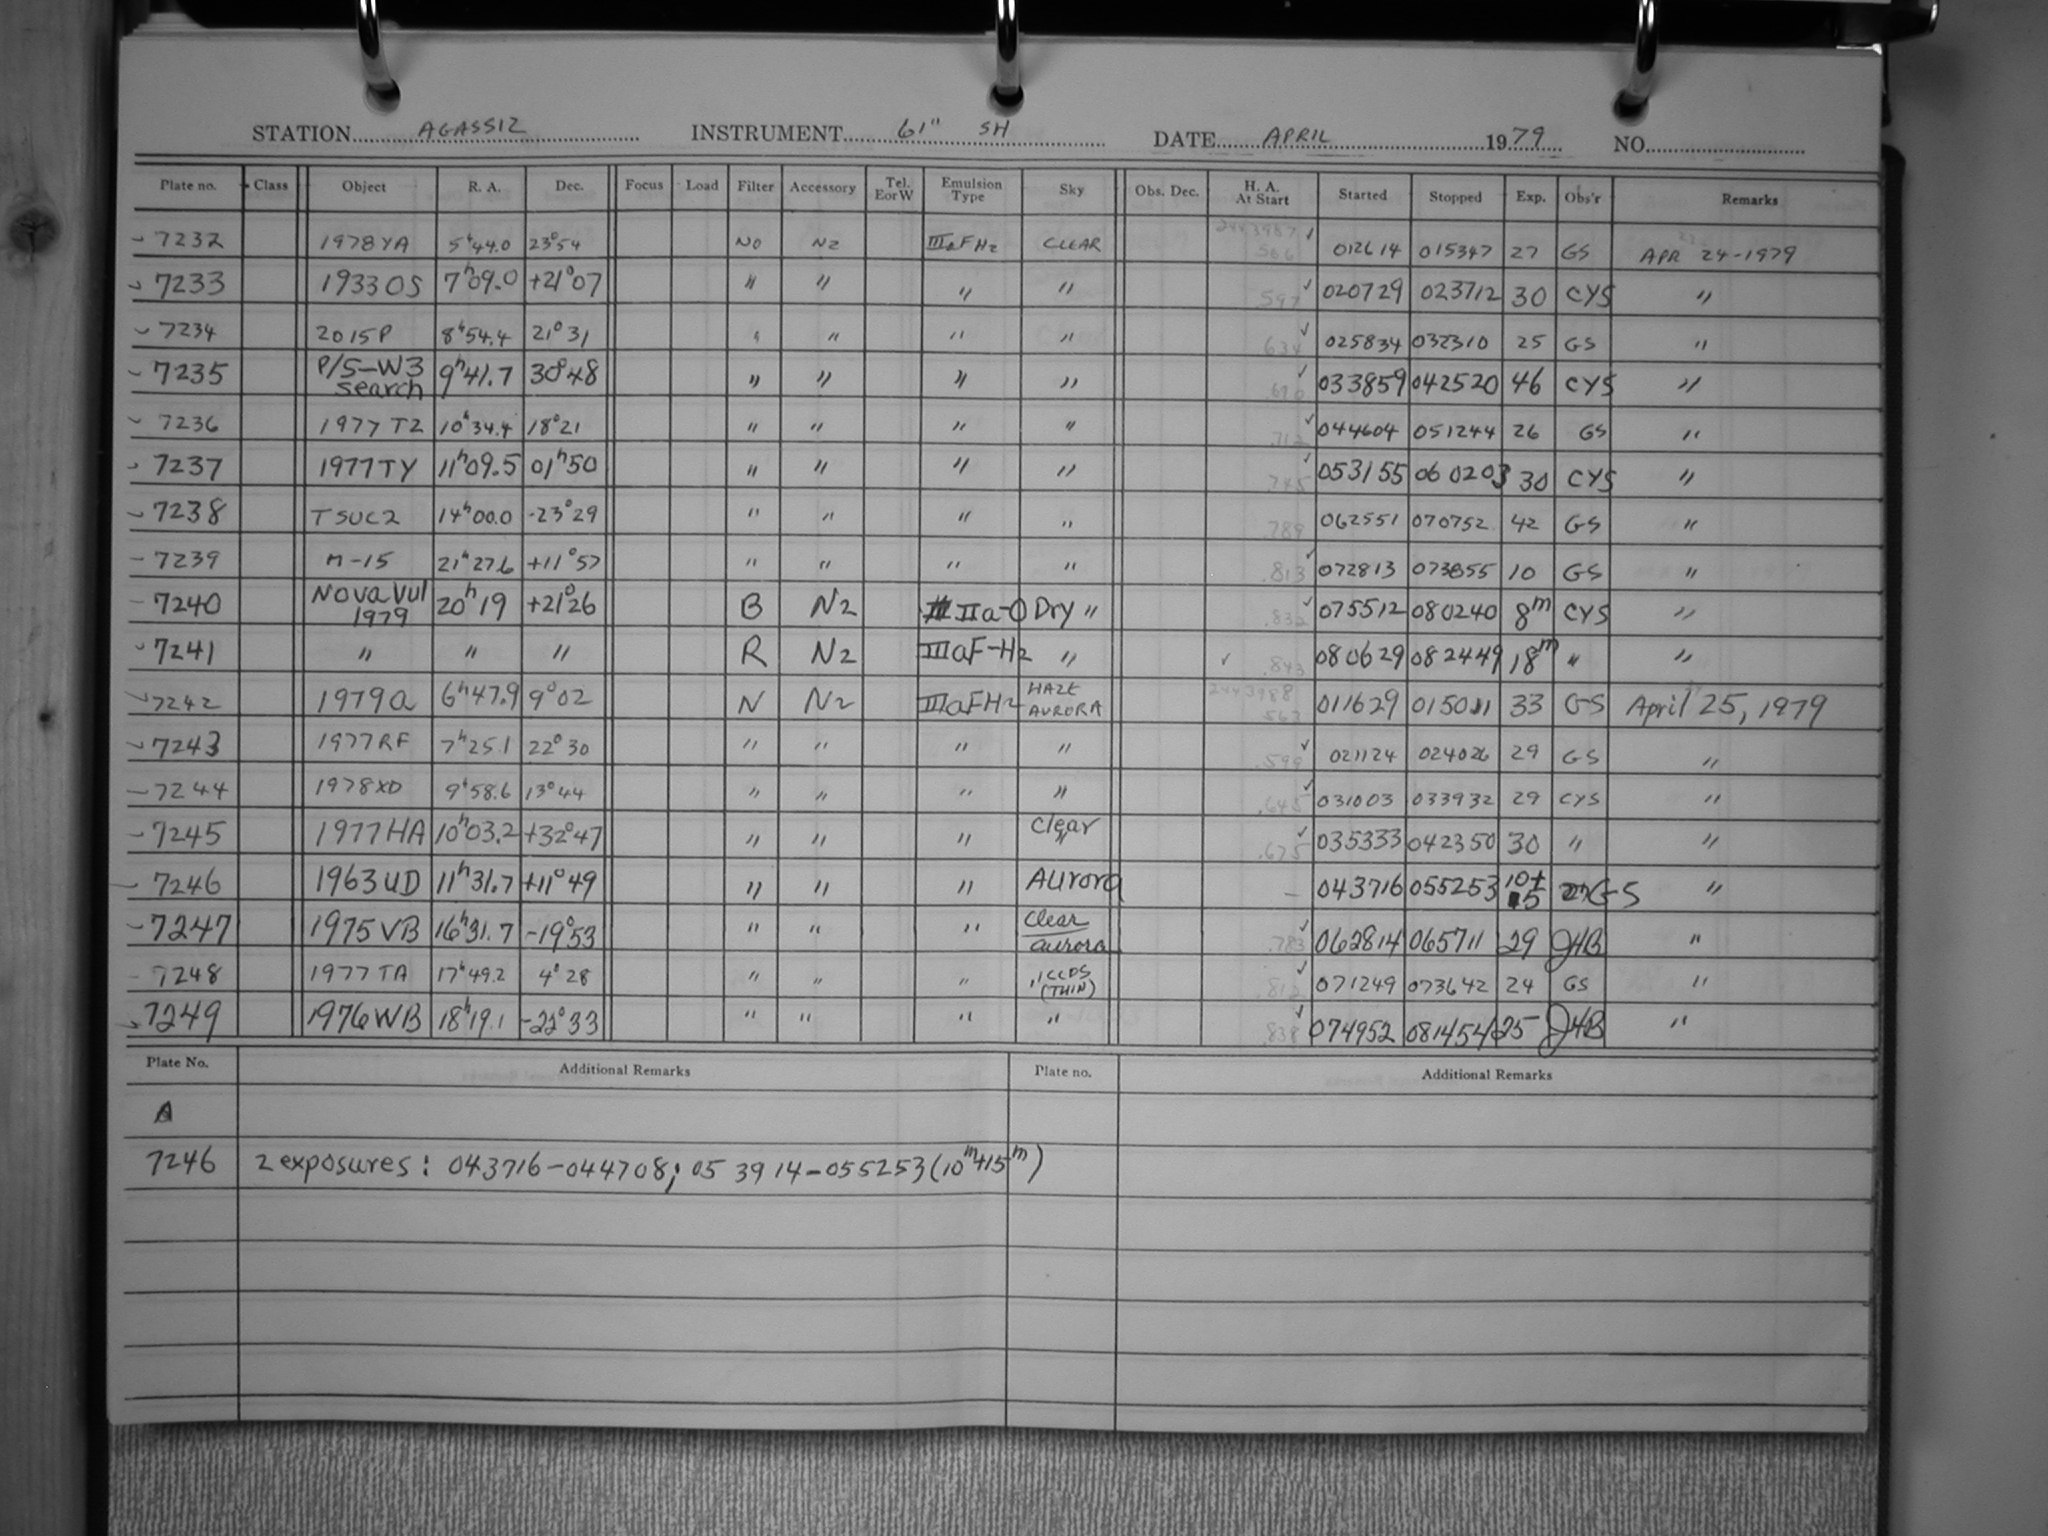 STATION AGASSIZ INSTRUMENT 61" SH DATE APRIL 1979 NO.
Plate no. Class Object R. A. Dec. Focus Load Filter Accessory Tel. E or W Emulsion Type Sky Obs. Dec. H. A. At Start Started Stopped Exp. Obs'r Remarks
7232 1978YA 5h44.0 23°54 NO N2 IIIaFH2 CLEAR 2443987 .566 012614 015347 27 GS APR 24-1979
7233 1933OS 7h09.0 +21°07 " " " " .597 020729 023712 30 CYS "
7234 2015P 8h54.4 21°31 " " " " .634 025834 032310 25 GS "
7235 P/S-W3 search 9h41.7 30°48 " " " " .690 033859 042520 46 CYS "
7236 1977T2 10h34.4 18°21 " " " " .712 044604 051244 26 GS "
7237 1977TY 11h09.5 01h50 " " " " .745 053155 060203 30 CYS "
7238 TSUC2 14h00.0 -23°29 " " " " .789 062551 070752 42 GS "
7239 M-15 21h27.6 +11°57 " " " " .813 072813 073855 10 GS "
7240 Nova Vul 1979 20h19 +21°26 B N2 IIa-O Dry " .832 075512 080240 8m CYS "
7241 " " " R N2 IIIaF-H2 " .843 080629 082449 18m " "
7242 1979a 6h47.9 9°02 N N2 IIIaFH2 HAZE AURORA 2443988 .563 011629 015011 33 GS April 25, 1979
7243 1977RF 7h25.1 22°30 " " " " .599 021124 024026 29 GS "
7244 1978XD 9h58.6 13°44 " " " " .645 031003 033932 29 CYS "
7245 1977HA 10h03.2 +32°47 " " " Clear " .675 035333 042350 30 " "
7246 1963UD 11h31.7 +11°49 " " " Aurora - 043716 055253 10+15 GS "
7247 1975VB 16h31.7 -19°53 " " " Clear aurora .783 062814 065711 29 JHB "
7248 1977TA 17h49.2 4°28 " " " " CLDS (THIN) .812 071249 073642 24 GS "
7249 1976WB 18h19.1 -22°33 " " " " .838 074952 081454 25 JHB "
Plate No. Additional Remarks Plate no. Additional Remarks
A
7246 2 exposures: 043716-044708; 053914-055253 (10m+15m)